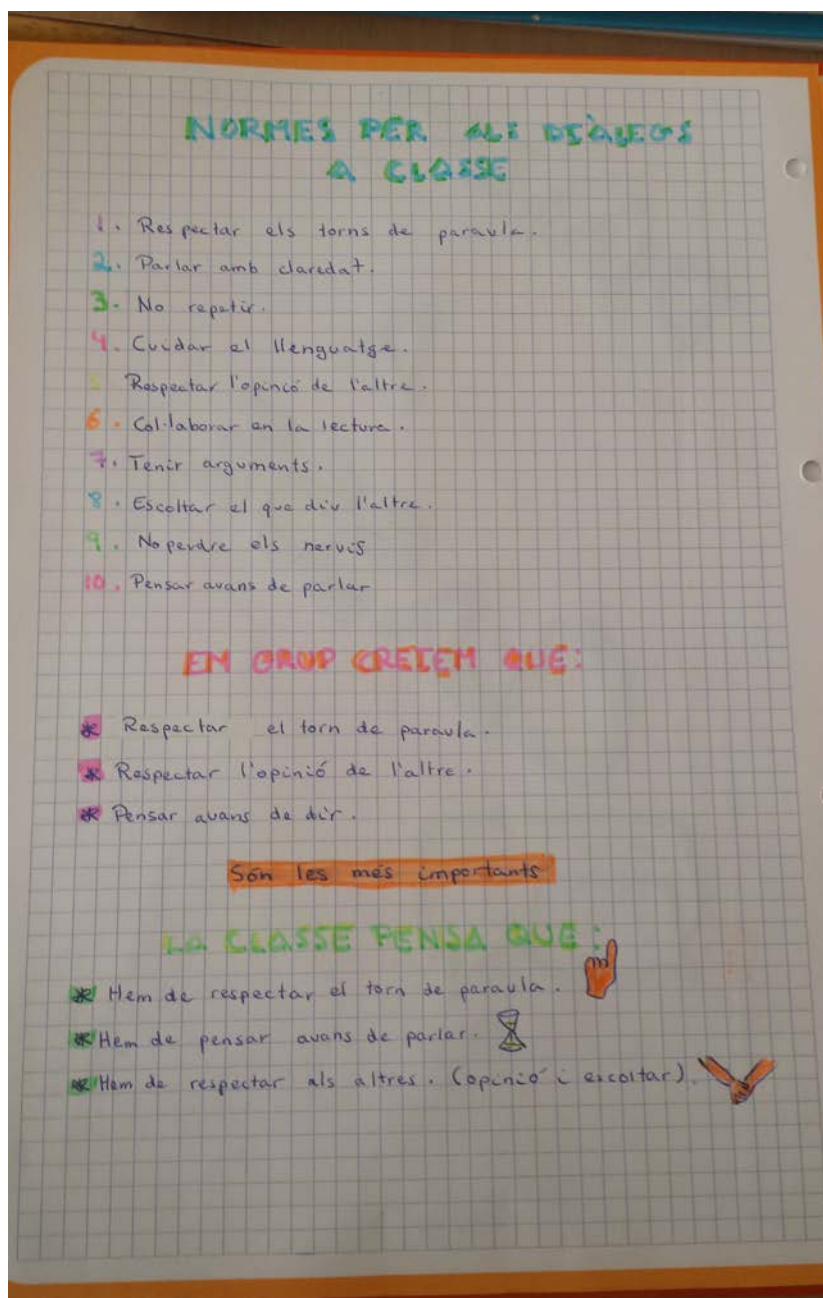 NORMES PER ALS DIÀLEGS
A CLASSE
1. Respectar els torns de paraula.
2. Parlar amb claredat.
3. No repetir.
4. Cuidar el llenguatge.
5 Respectar l'opinció de l'altre.
6. Col·laborar en la lectura.
7. Tenir arguments.
8. Escoltar el que diu l'altre.
9. No perdre els nervis
10. Pensar avans de parlar
EM GRUP CREIEM QUE:
* Respectar el torn de paraula.
* Respectar l'opinió de l'altre.
* Pensar avans de dir.
Són les més importants
LA CLASSE PENSA QUE:
* Hem de respectar el torn de paraula.
* Hem de pensar avans de parlar.
* Hem de respectar als altres. (opinió i escoltar).